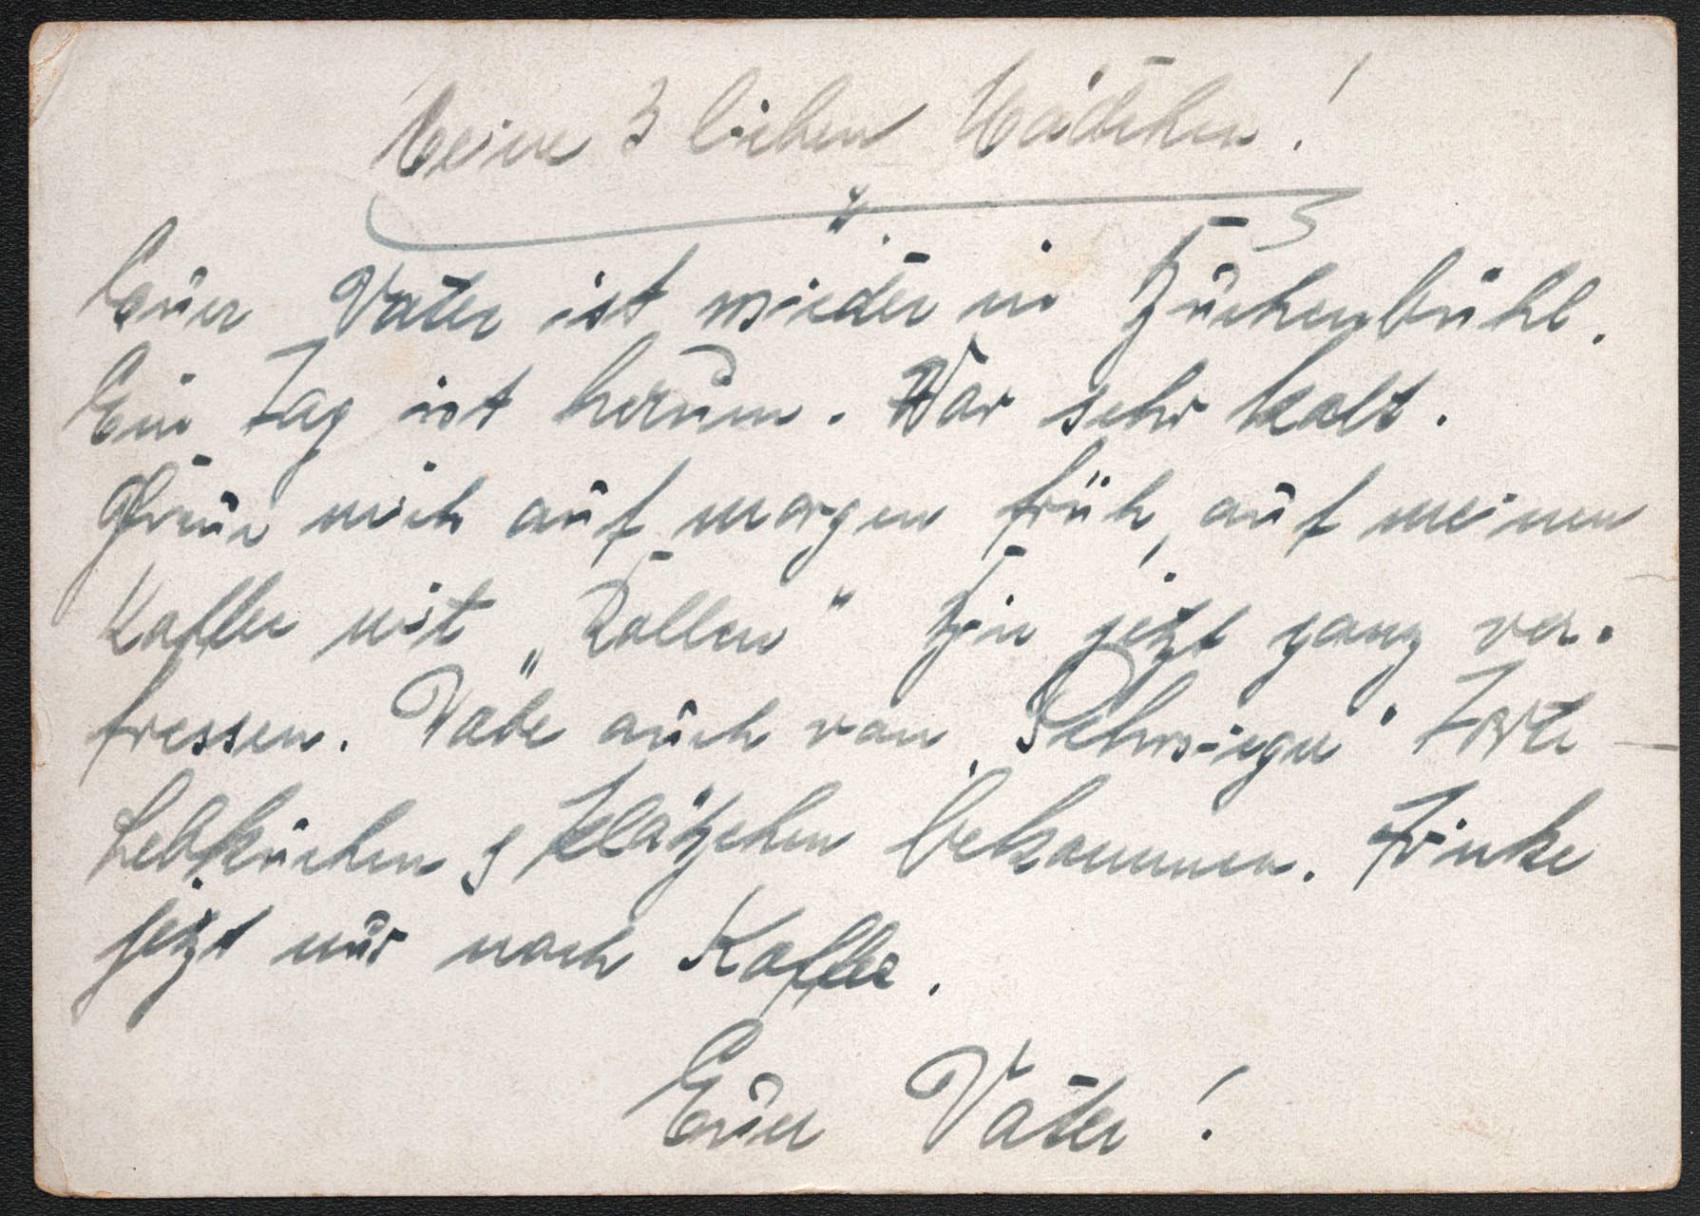 Meine 3 lieben Mädchen!
Euer Vater ist wieder in
Ein Tag ist herum. War sehr kalt.
Freue mich auf morgen früh, auf meinen
Kaffee mit „ “ Bin jetzt ganz ver-
fressen. Habe auch von Torte
Lebkuchen & Plätzchen bekommen. Trinke
jetzt nur noch Kaffee.
Euer Vater!